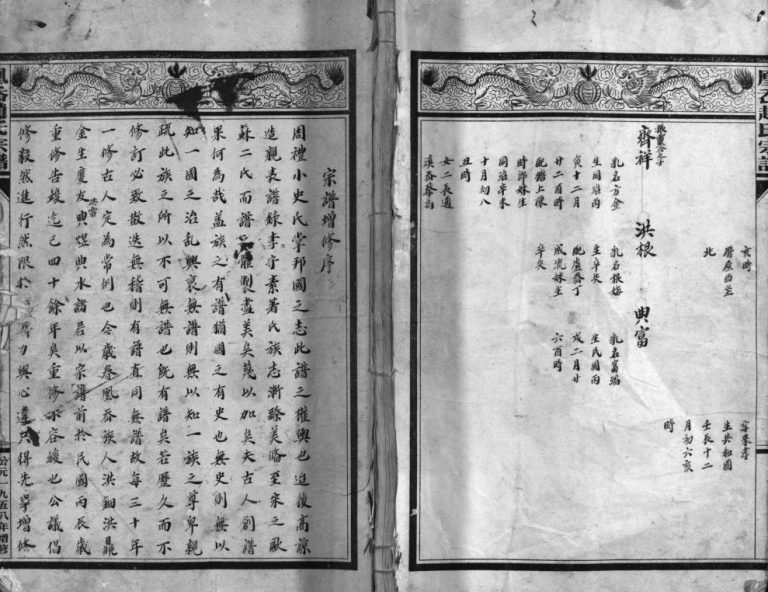 宗譜增修序
周禮小史氏掌邦國之志此譜之權輿也迨後高諒
造親表譜錄李守素著氏族志漸臻美備至宋之歐
蘇二氏而譜體製盡美矣蔑以加矣夫古人創譜
果何為哉蓋族之有譜猶國之有史也無史則無以
知一國之治亂興衰無譜則無以知一族之尊卑親
疏此族之所以不可無譜也既有譜矣若歷久而不
修訂必致散迭無稽則有譜直同無譜故每三十年
一修古人定為常例也今歲春鳳岙族人洪鈿洪鼎
金生慶友典煜典水諸君以宗譜前於民國丙辰歲
洪雷
重修告竣迄已四十餘年矣重修不容緩也公議倡
修毅然進行然限於力與心違只得先舉增修
公元一九五八年增修
鳳岙趙氏宗譜
亥時
厝屋西至
北
振東公三子
齊祥 洪根 典富
乳名方金
生同治丙
寅十二月
廿二酉時
配瞻上陳
時邱妹生
同治辛未
十月初八
丑時
女二長適
溪岙
乳名根
生辛
配盧岙丁
成
辛
乳名富
生民國丙
戌二月廿
六酉時
生共和國
壬辰十二
月初六亥
時